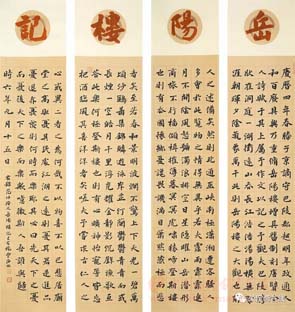 岳陽樓記
慶曆四年春滕子京謫守巴陵郡越明年政通人
和百廢具興乃重修岳陽樓增其舊制刻唐
賢今人詩賦於其上屬予作文以記之予觀夫巴陵
勝狀在洞庭一湖銜遠山吞長江浩浩湯湯橫無際
涯朝暉夕陰氣象萬千此則岳陽樓之大觀也
前人之述備矣然則北通巫峽南極瀟湘遷客騷人
多會於此覽物之情得無異乎若夫霪雨霏霏連
月不開陰風怒號濁浪排空日星隱耀山岳潛形
商旅不行檣傾楫摧薄暮冥冥虎嘯猿啼登斯樓
也則有去國懷鄉憂讒畏譏滿目蕭然感極而悲
者矣至若春和景明波瀾不驚上下天光一碧萬
頃沙鷗翔集錦鱗游泳岸芷汀蘭郁郁青青而或
長煙一空皓月千里浮光躍金靜影沉璧漁歌互
答此樂何極登斯樓也則有心曠神怡寵辱偕忘
把酒臨風其喜洋洋者矣嗟夫予嘗求古仁人之
心或異二者之為何哉不以物喜不以己悲居廟
堂之高則憂其民處江湖之遠則憂其君是進亦
憂退亦憂然則何時而樂耶其必曰先天下之憂
而憂後天下之樂而樂乎噫微斯人吾誰與歸
時六年九月十五日